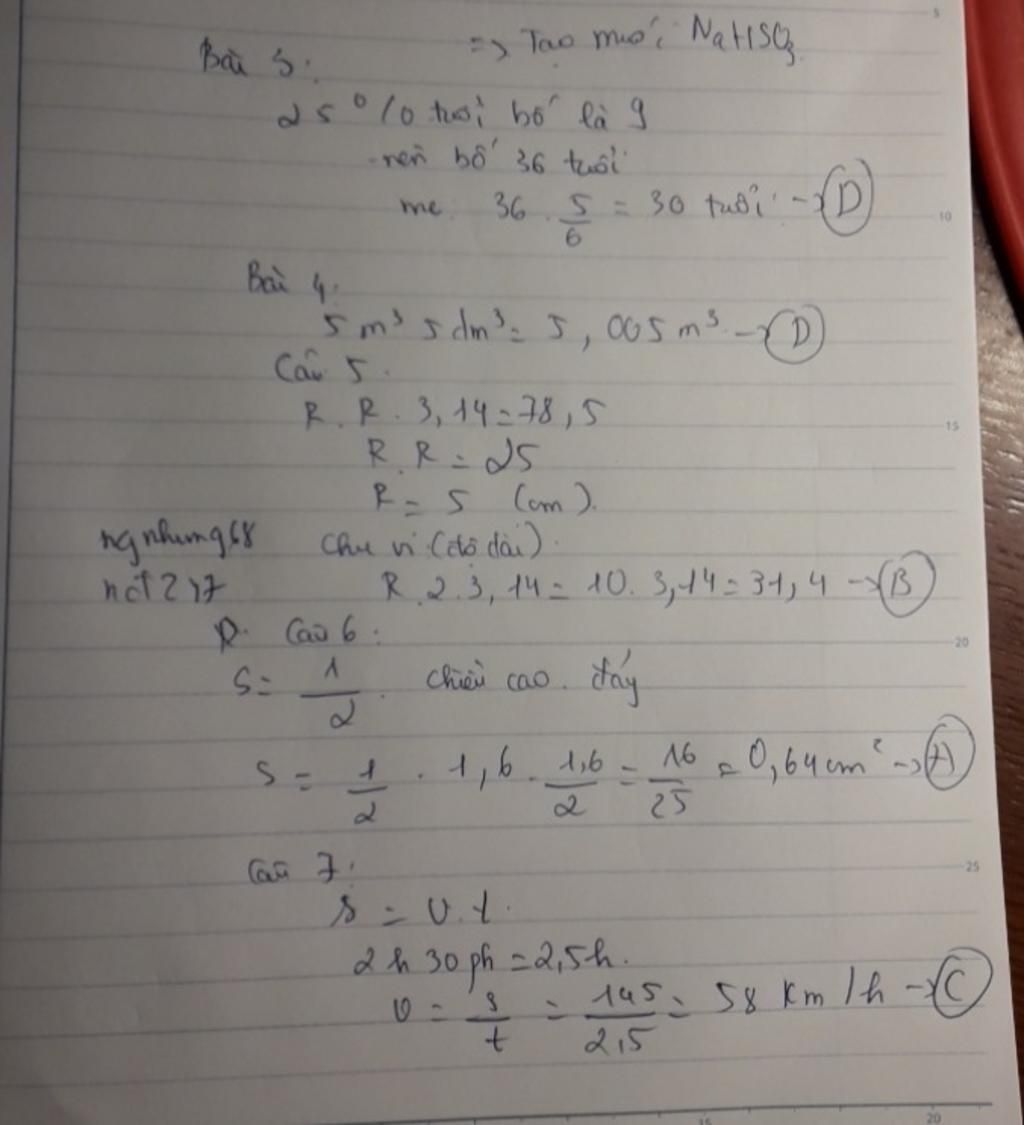 => Tạo muối NaHSO3
Bài 3:
25% tuổi bố là 9
nên bố 36 tuổi
mẹ 36 . 5/6 = 30 tuổi -> D
Bài 4:
5 m³ 5 dm³ = 5,005 m³ -> D
Câu 5.
R . R . 3,14 = 78,5
R . R = 25
R = 5 (cm).
Chu vi (độ dài).
ngnhung68
R . 2 . 3,14 = 10 . 3,14 = 31,4 -> B
Câu 6:
S = 1/2 . chiều cao . đáy
S = 1/2 . 1,6 . 1,6/2 = 16/25 = 0,64 cm² -> A
Câu 7:
s = v.t.
2h 30ph = 2,5h.
v = s/t = 145/2,5 = 58 km/h -> C
5
10
15
20
25
15
20